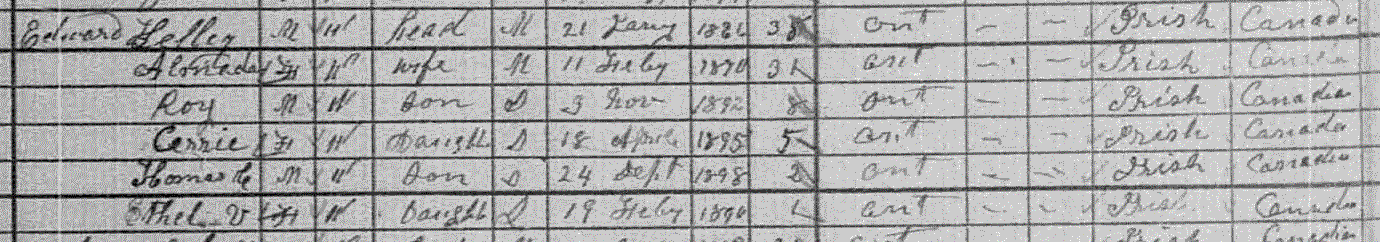 Edward M W head M 21 Jany 38 ont – – Irish Canada
Almeda F W wife M 11 Feby 1870 31 ont – – Irish Canada
Roy M W Son S 3 Nov 1892 8 ont – – Irish Canada
Carrie F W Daught S 18 April 1895 5 ont – – Irish Canada
Thomas M W Son S 24 Sept 1898 2 ont – – Irish Canada
Ethel V F W Daught S 19 Feby 1 ont – – Irish Canada